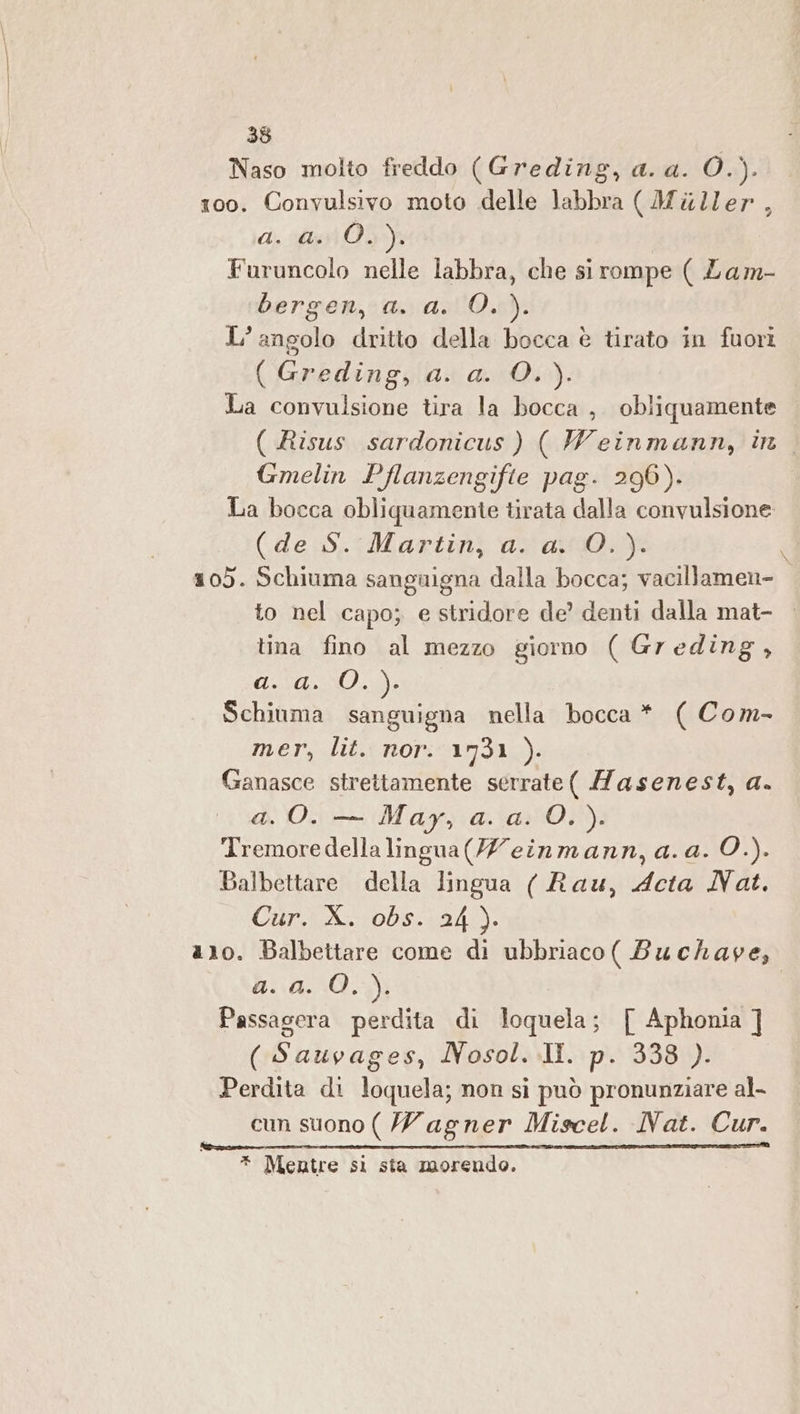 38
Naso molto freddo (Greding, a. a. O.).
100. Convulsivo moto delle labbra ( Müller ,
a. a. O. ).
Furuncolo nelle labbra, che si rompe ( Lam-
bergen, a. a. O. ).
L’angolo dritto della bocca è tirato in fuori
( Greding, a. a. O. ).
La convulsione tira la bocca , obliquamente
( Risus sardonicus ) ( Weinmann, in
Gmelin Pflanzengifte pag. 296).
La bocca obliquamente tirata dalla convulsione
(de S. Martin, a. a. O. ).
105. Schiuma sanguigna dalla bocca; vacillamen-
to nel capo; e stridore de’ denti dalla mat-
tina fino al mezzo giorno ( Greding ,
a. a. O. ).
Schiuma sanguigna nella bocca * ( Com-
mer, lit. nor. 1731 ).
Ganasce strettamente serrate ( Hasenest, a.
a. O. — May, a. a. O. ).
Tremore della lingua (Weinmann, a. a. O.).
Balbettare della lingua ( Rau, Acta Nat.
Cur. X. obs. 24 ).
110. Balbettare come di ubbriaco ( Buchave,
a. a. O. ).
Passagera perdita di loquela; [ Aphonia ]
( Sauvages, Nosol. II. p. 338 ).
Perdita di loquela; non si può pronunziare al-
cun suono ( Wagner Miscel. Nat. Cur.
* Mentre si sta morendo.